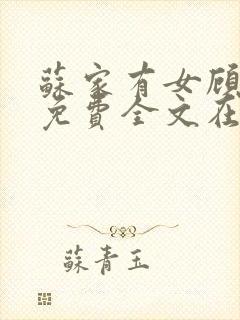 蘇家有女顧
免費全文在
蘇青玉